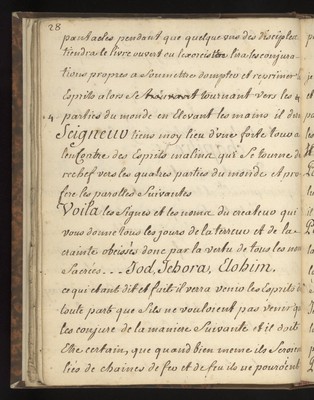 28
pantacles pendant que quelque uns des disciples
tiendra le livre ouvert ou l'exorciste lira les conjura-
tions propres a soumettre dompter et reprimer l
Esprits alors se tournant vers les 4
.4. parties du monde en Elevant les mains il dira
Seigneur tiens moy lieu d'une forte tour a
lencontre des Esprits malins qui se tourne de
rechef vers les quatres parties du monde et pro
fere les parolles Suivantes
Voila les Signes et les noms du createur qui
vous donne tous les jours de la terreur et de la
crainte obeissés donc par la vertu de tous les noms
Sacrées ... Jod, Jehora, Elohim.
ce qui etant dit et fait il verra venir les Esprits de
toute part que s'ils ne vouloient pas venir qu
les conjure de la maniere Suivante et il doit
Etre certain, que quand bien meme ils Seroient
liés de chaines de fer et de feu ils ne pouroient